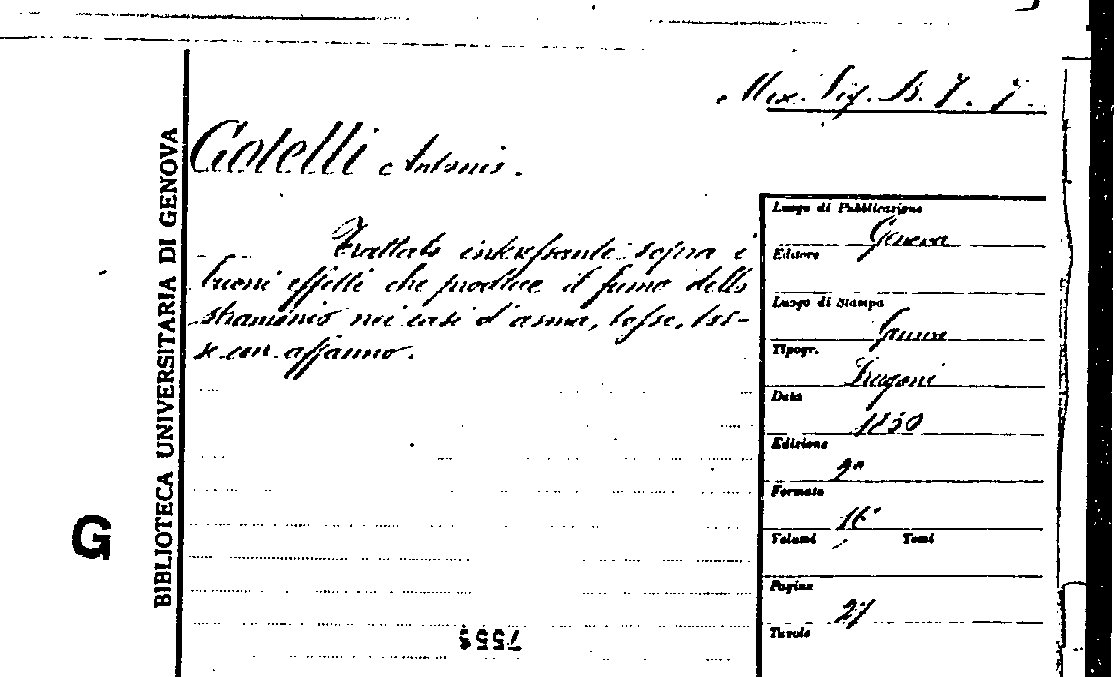 Misc. Lig. B. 7. 7.
Gotelli Antonio.
Trattato interessante sopra i
buoni effetti che produce il fumo dello
stramonio nei casi d'asma, tosse, tos-
se con affanno.
Luogo di Pubblicazione
Genova
Editore
Luogo di Stampa
Genova
Tipogr.
Fragoni
Data
1830
Edizione
2ª
Formato
16°
Volumi Tomi
Pagine
27
Tavole
BIBLIOTECA UNIVERSITARIA DI GENOVA
G